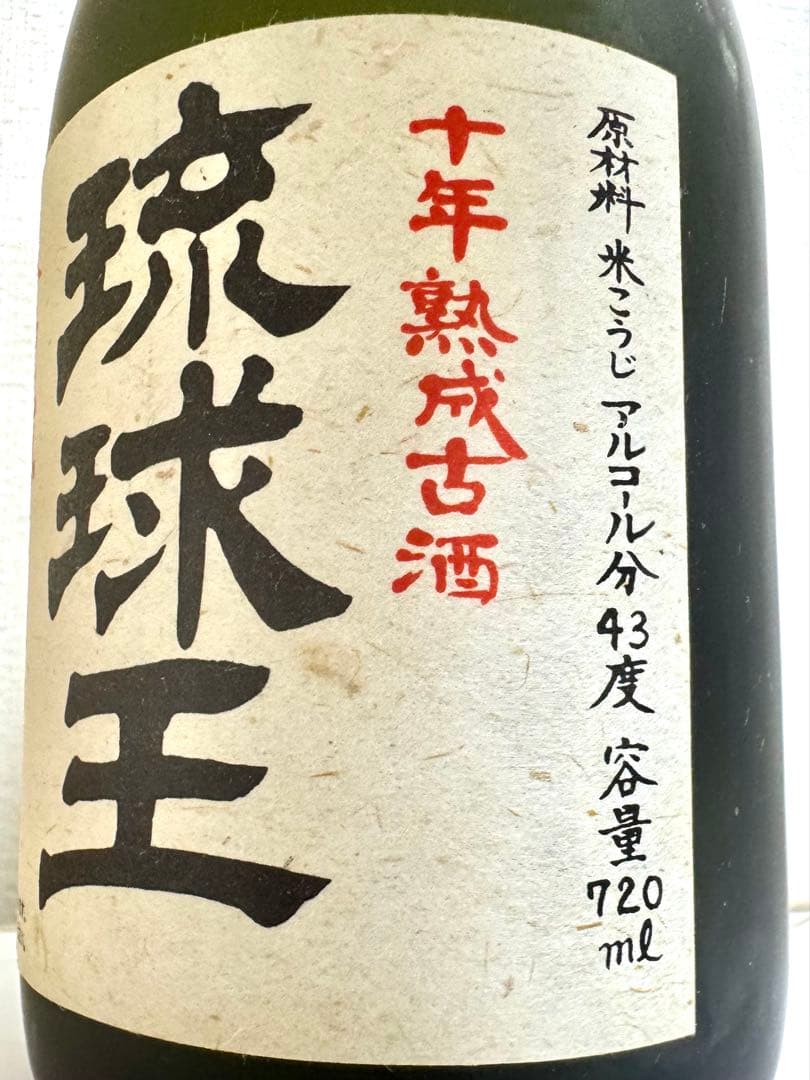 原材料 米こうじ アルコール分 43度 容量 720ml
十年熟成古酒
琉球王